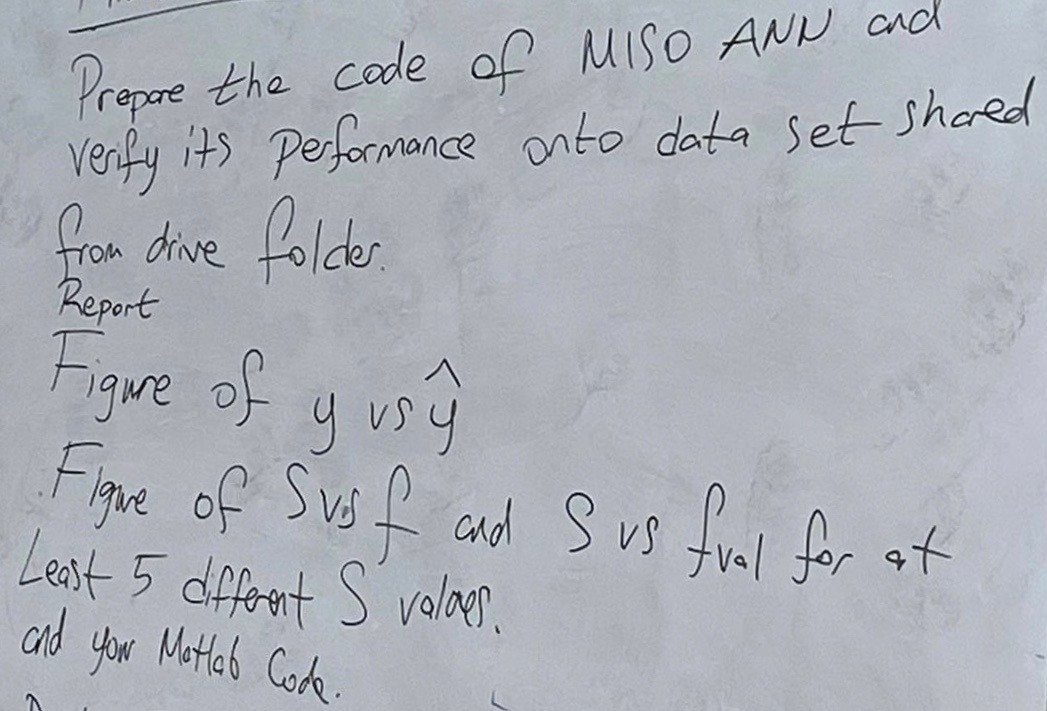 Prepare the code of MISO ANN and
verify its performance onto data set shared
from drive folder.
Report
Figure of y vs ŷ
Figure of S vs f and S vs fval for at
Least 5 different S values.
and your Matlab Code.